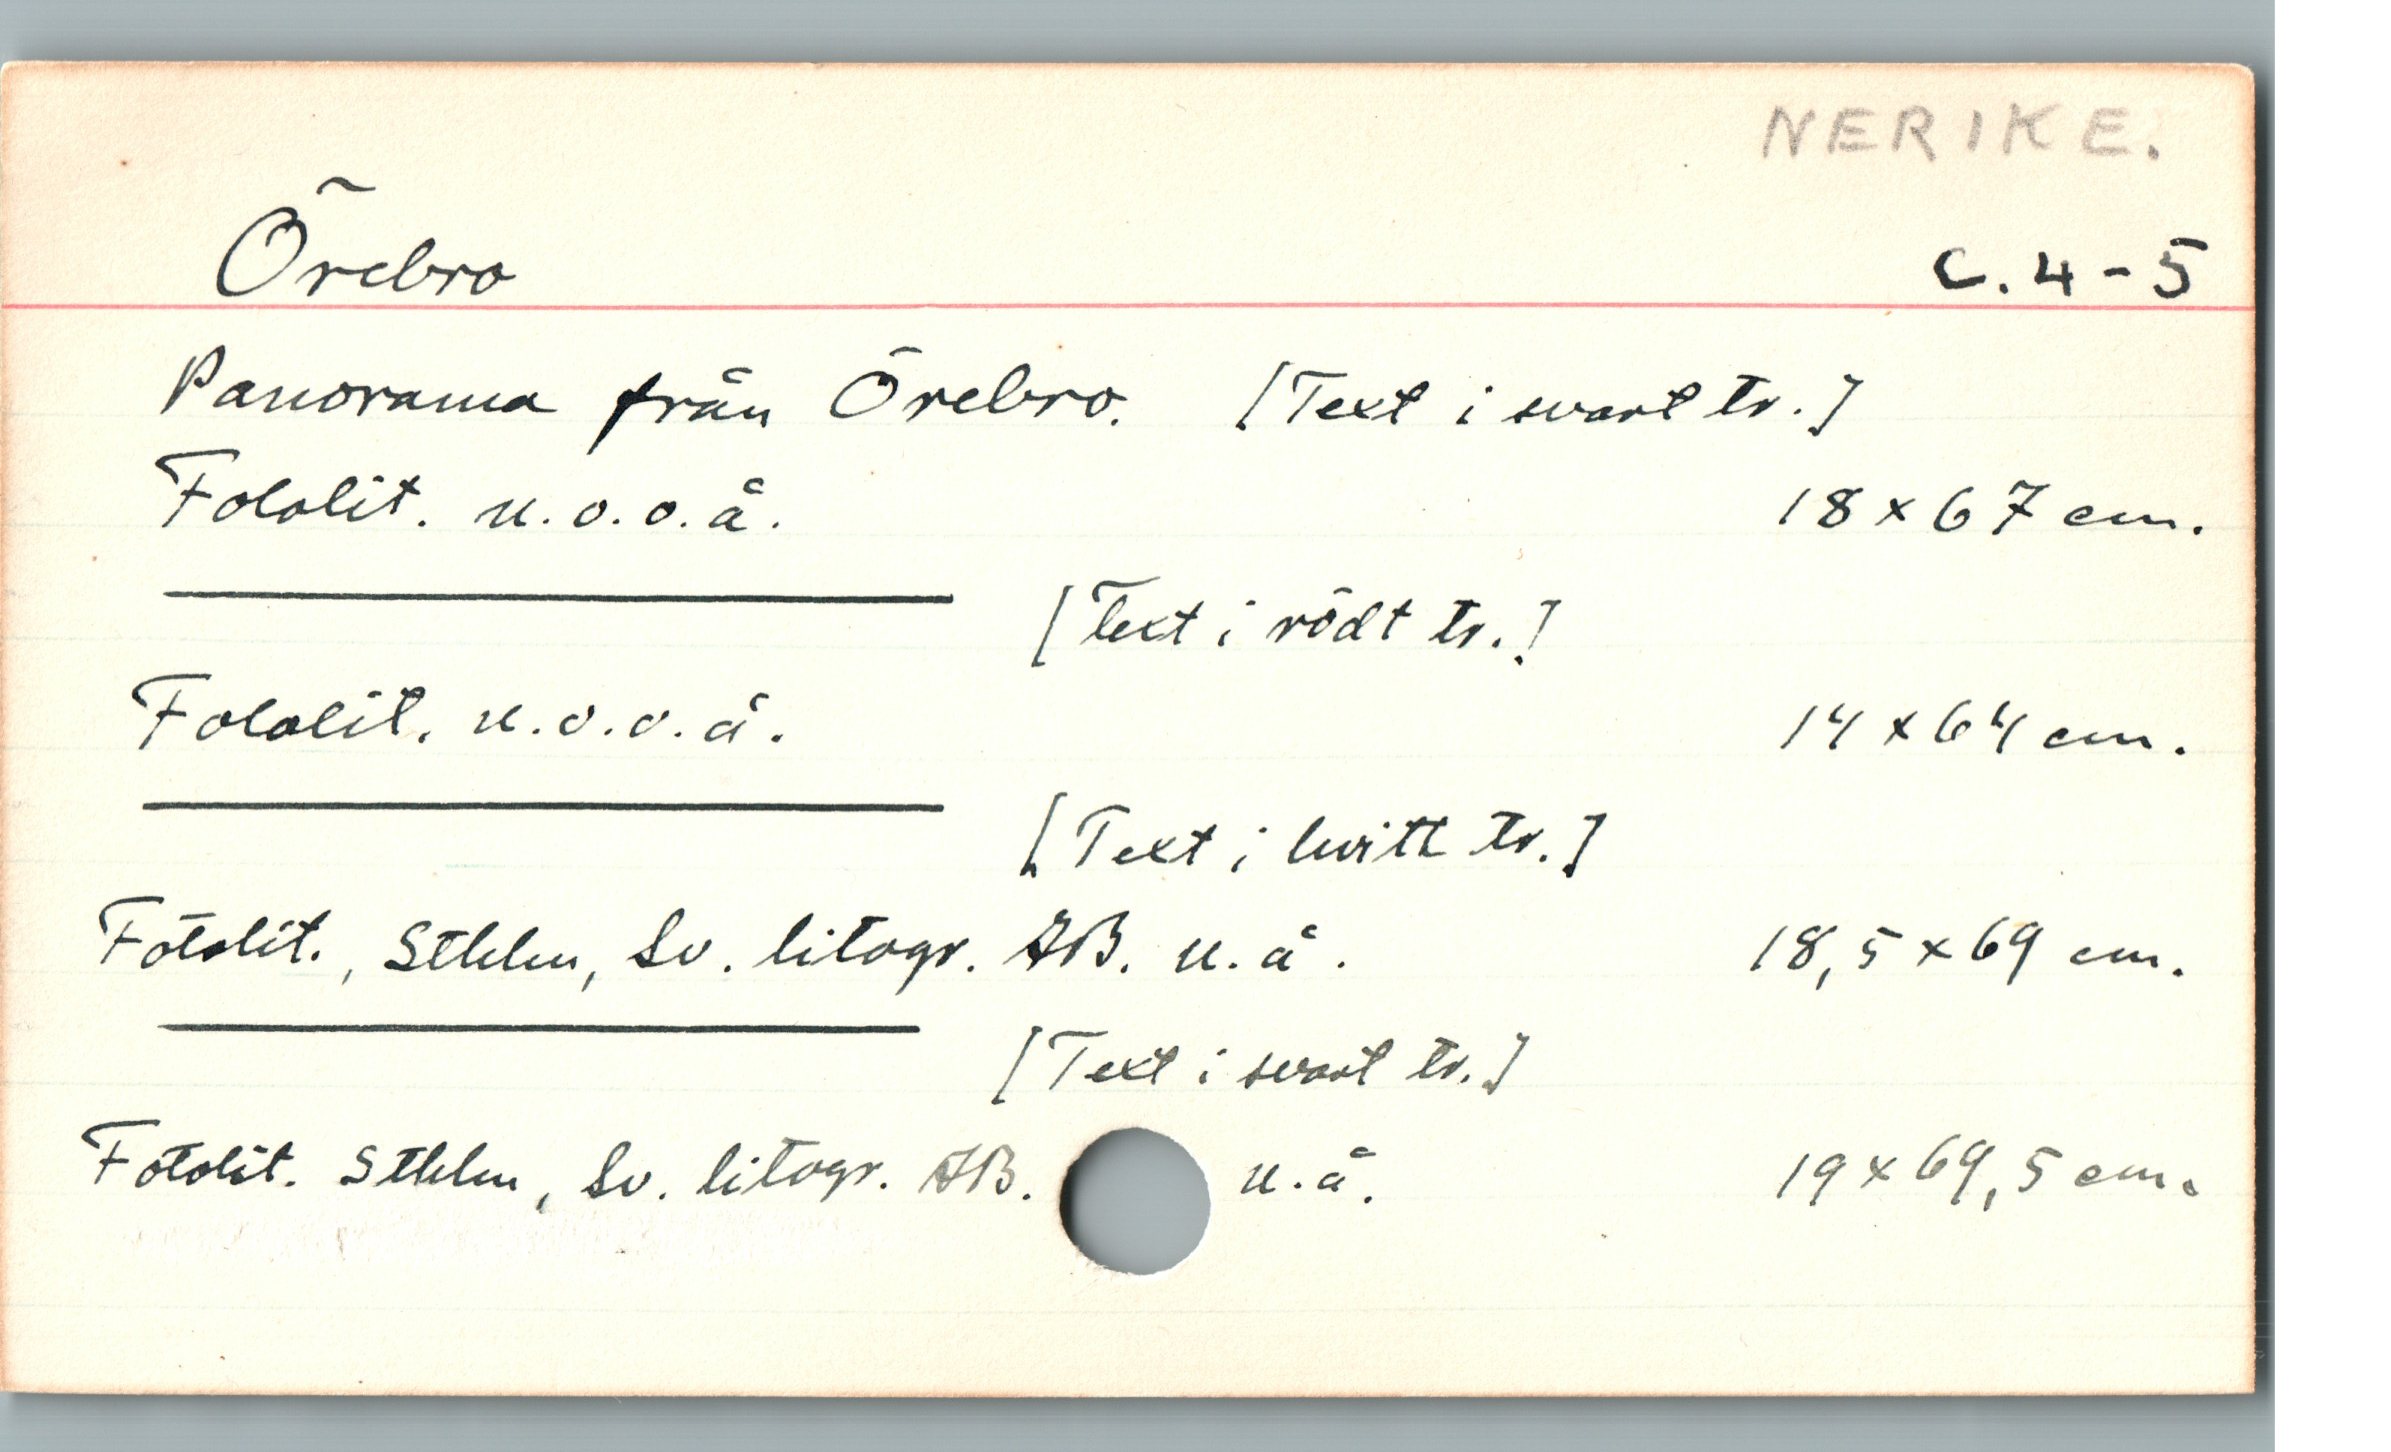 NERIKE.
Örebro C. 4-5
Panorama från Örebro. [Text i svart tr.]
Fotolit. u. o. o. å. 18 x 67 cm.
[Text i rödt tr.]
Fotolit. u. o. o. å. 14 x 64 cm.
[Text i hvitt tr.]
Fotolit., Sthlm, Sv. litogr. AB. u. å. 18,5 x 69 cm.
[Text i svart tr.]
Fotolit. Sthlm, Sv. litogr. AB. u. å. 19 x 69,5 cm.